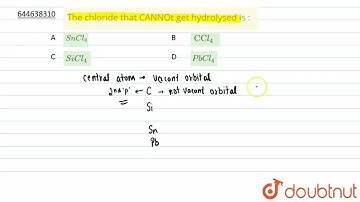 644638310
The chloride that CANNOt get hydrolysed is :
A SnCl4 B CCl4
C SiCl4 D PbCl4
central atom → vacant orbital
2nd 'p' ← C → not vacant orbital
Si
Sn
Pb
doubtnut